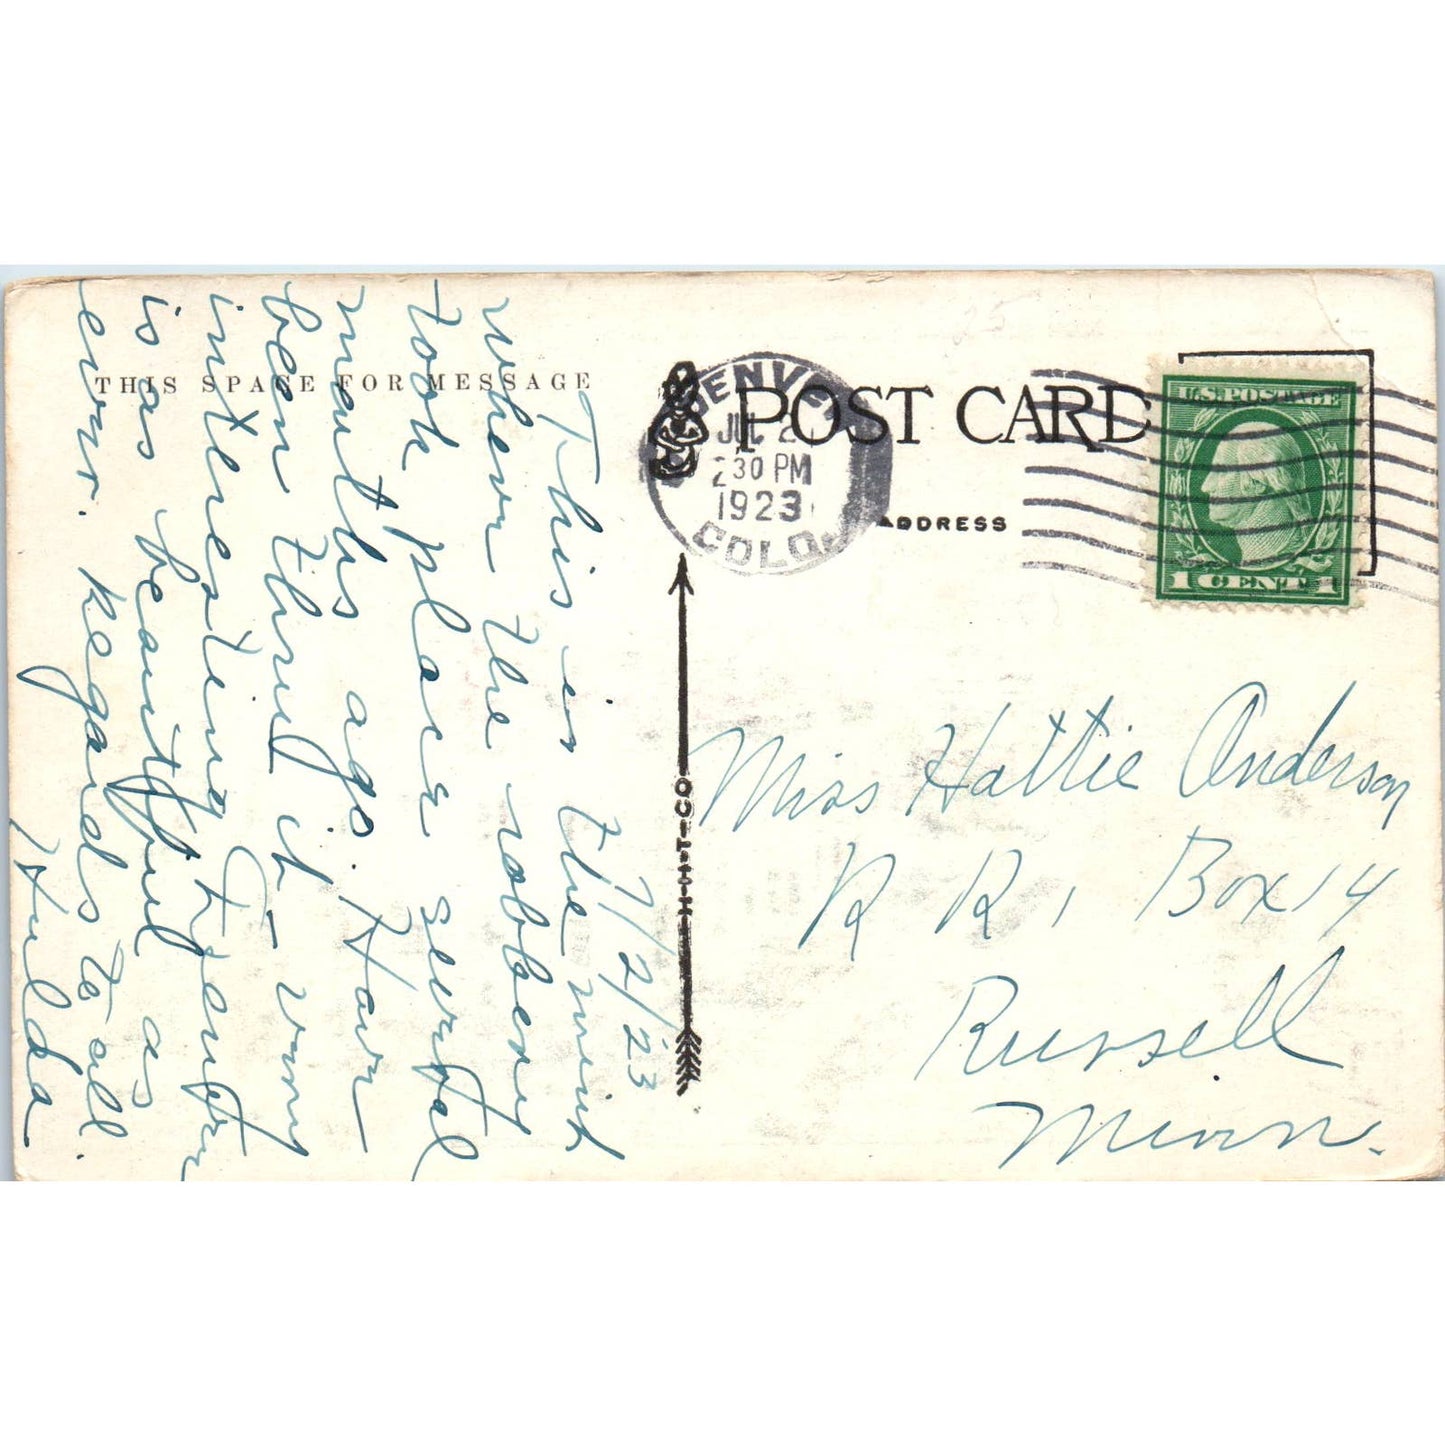 THIS SPACE FOR MESSAGE
7/2/23
This is the mint
where the robbery
took place several
months ago. Have
been thru it - very
interesting. Denver
is as beautiful as
ever. Regards to all.
Hulda
DENVER
JUL 2
230 PM
1923
COLO.
POST CARD
ADDRESS
U.S. POSTAGE
1 CENT 1
H-H-T-CO
Miss Hattie Anderson
R R 1 Box 14
Russell
Minn.